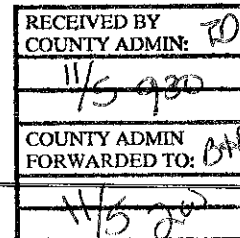 RECEIVED BY
COUNTY ADMIN: TD
11/5 930
COUNTY ADMIN
FORWARDED TO: BH
11/5